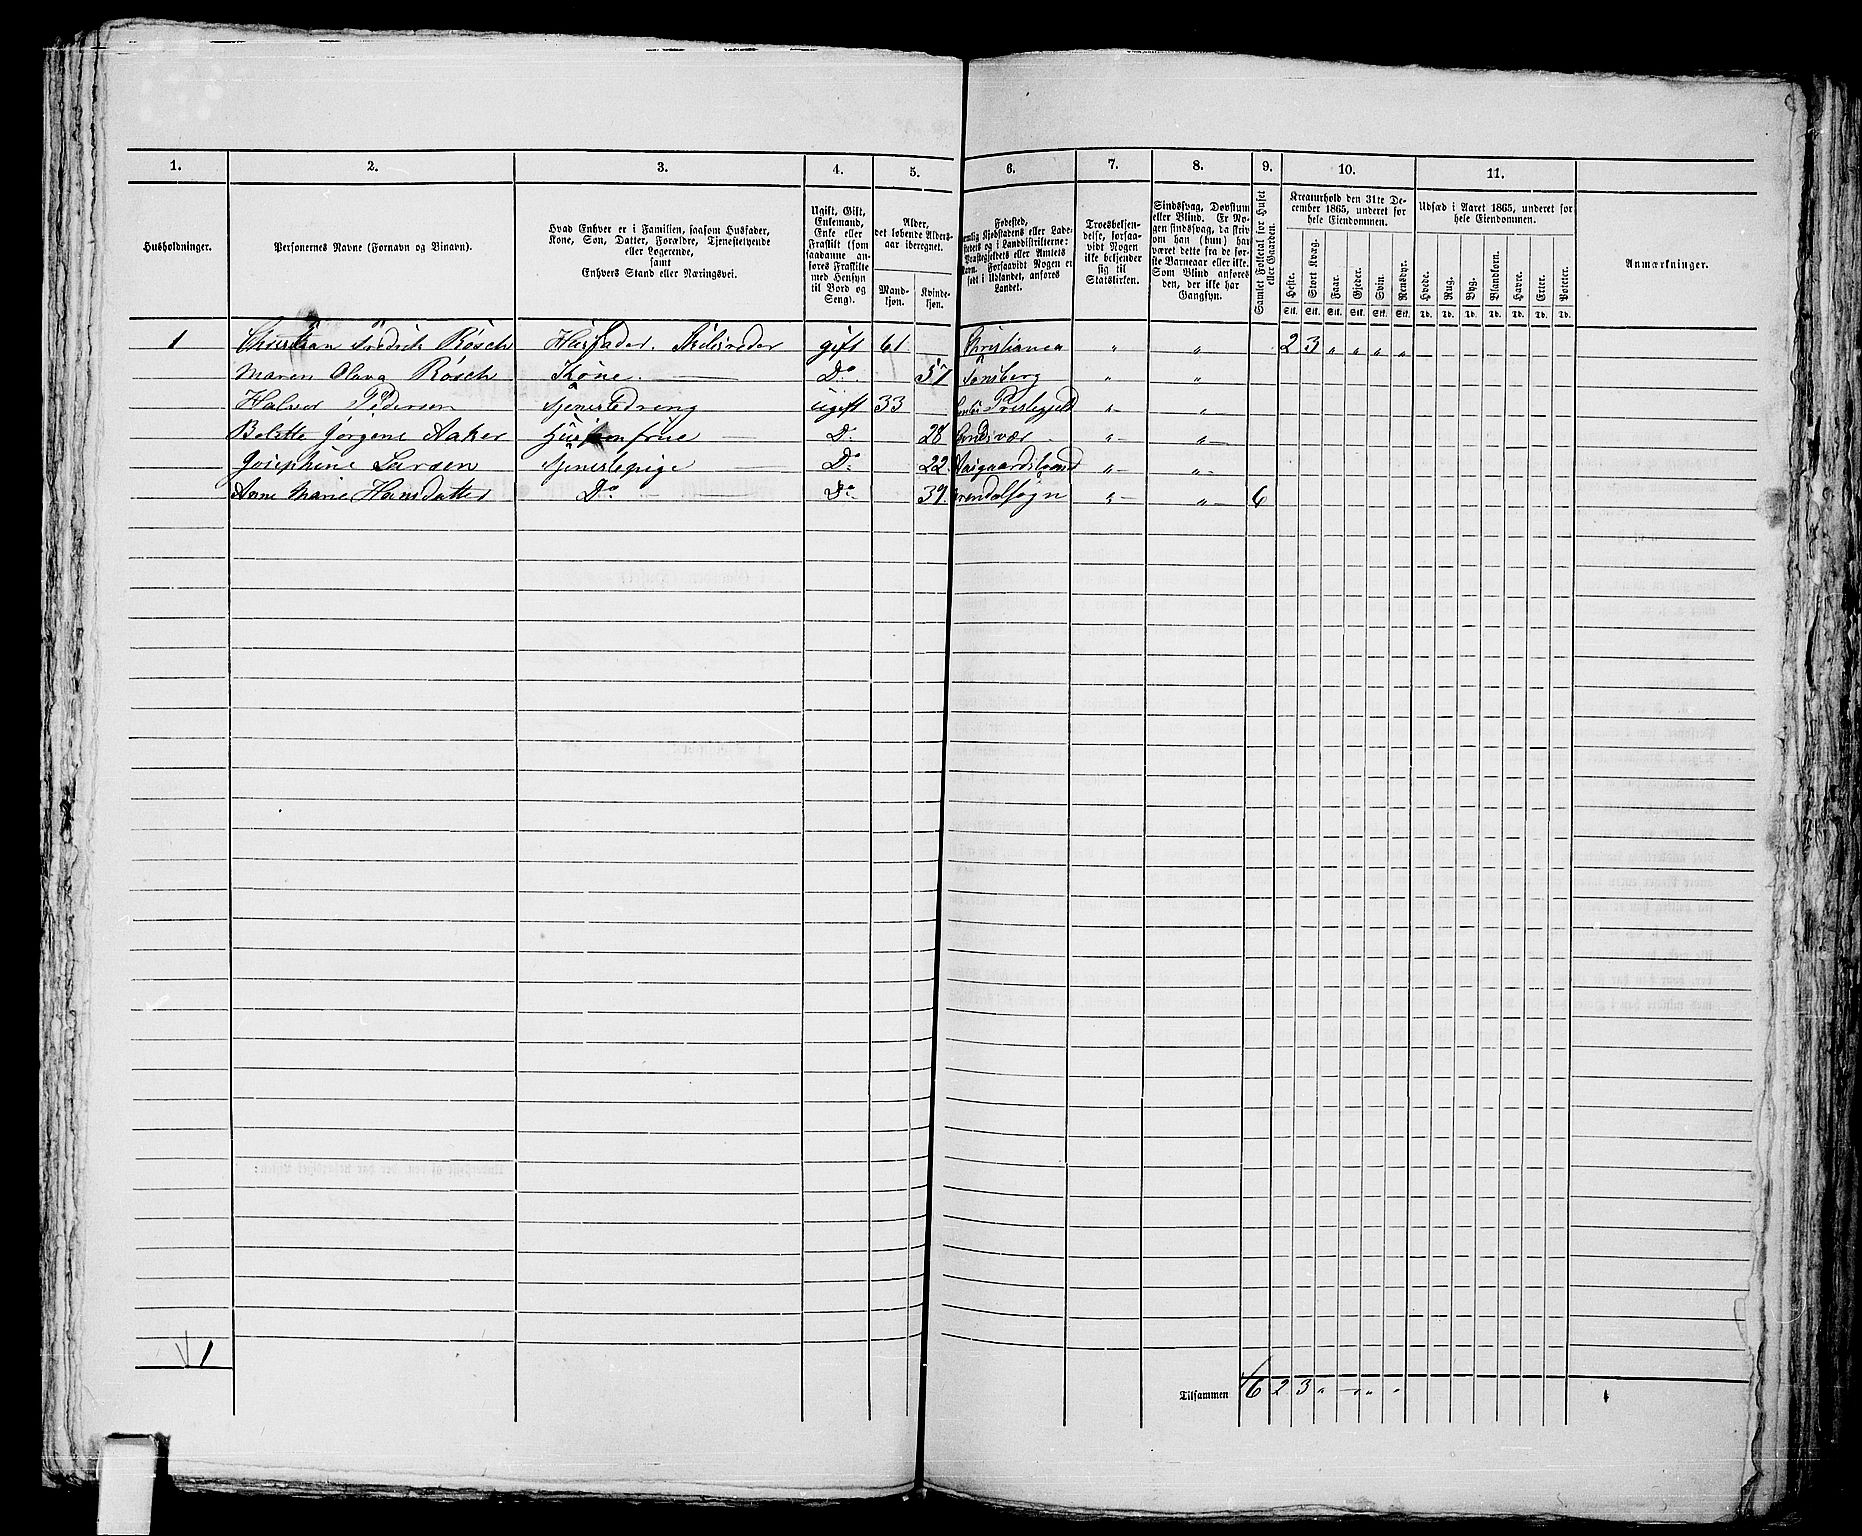 1. 2. 3. 4. 5. 6. 7. 8. 9. 10. 11.
Husholdninger.
Personernes Navne (Fornavn og Binavn).
Hvad Enhver er i Familien, saasom Husfader,
Kone, Søn, Datter, Forældre, Tjenestetyende
eller Logerende,
samt
Enhvers Stand eller Næringsvei.
Ugift, Gift,
Enkemand,
Enke eller
Fraskilt (som
saadanne an-
føres Fraskilte
med Hensyn
til Bord og
Seng).
Alder,
det løbende Alders-
aar iberegnet.
Mand-
kjøn.
Kvinde-
kjøn.
Fødested,
Kjøbstadens eller Lade-
stedets og i Landdistrikterne:
Præstegjeldets eller Amtets
Navn. Forsaavidt Nogen er
født i Udlandet, anføres
Landet.
Troesbekjen-
delse, forsaa-
vidt Nogen
ikke bekjender
sig til
Statskirken.
Sindssvag, Døvstum
eller Blind. Er No-
gen sindssvag, da skriv
om han (hun) har
været dette fra de før-
ste Barneaar eller ikke.
Som Blind anføres
den, der ikke har
Gangsyn.
Samlet Folketal for Huset
eller Gaarden.
Kreaturhold den 31te De-
cember 1865, underet for
hele Eiendommen.
Heste.
Stort Kvæg.
Faar.
Gjeder.
Svin.
Rensdyr.
Stk. Stk. Stk. Stk. Stk. Stk.
Udsæd i Aaret 1865, underet for
hele Eiendommen.
Hvede.
Rug.
Byg.
Blandkorn.
Havre.
Erter.
Poteter.
Td. Td. Td. Td. Td. Td. Td.
Anmærkninger.
1 Christian Fredrik Rösch Husfader. Skibsreder gift 61 Christiania " " 2 3 " " " "
Maren Olava Rösch Kone. Do. 57 Tønsberg " "
Halvor Pedersen Tjenestedreng ugift 33 Præstegjeld " "
Bolette Jørgene Aaker Huusjomfrue D. 28 " "
Josephine Larsen Tjenestepige Do 22 Aasgaardstrand " "
Anne Marie Hansdatter Do Do 39. " " 6
1
Tilsammen 6 2 3 " " " "